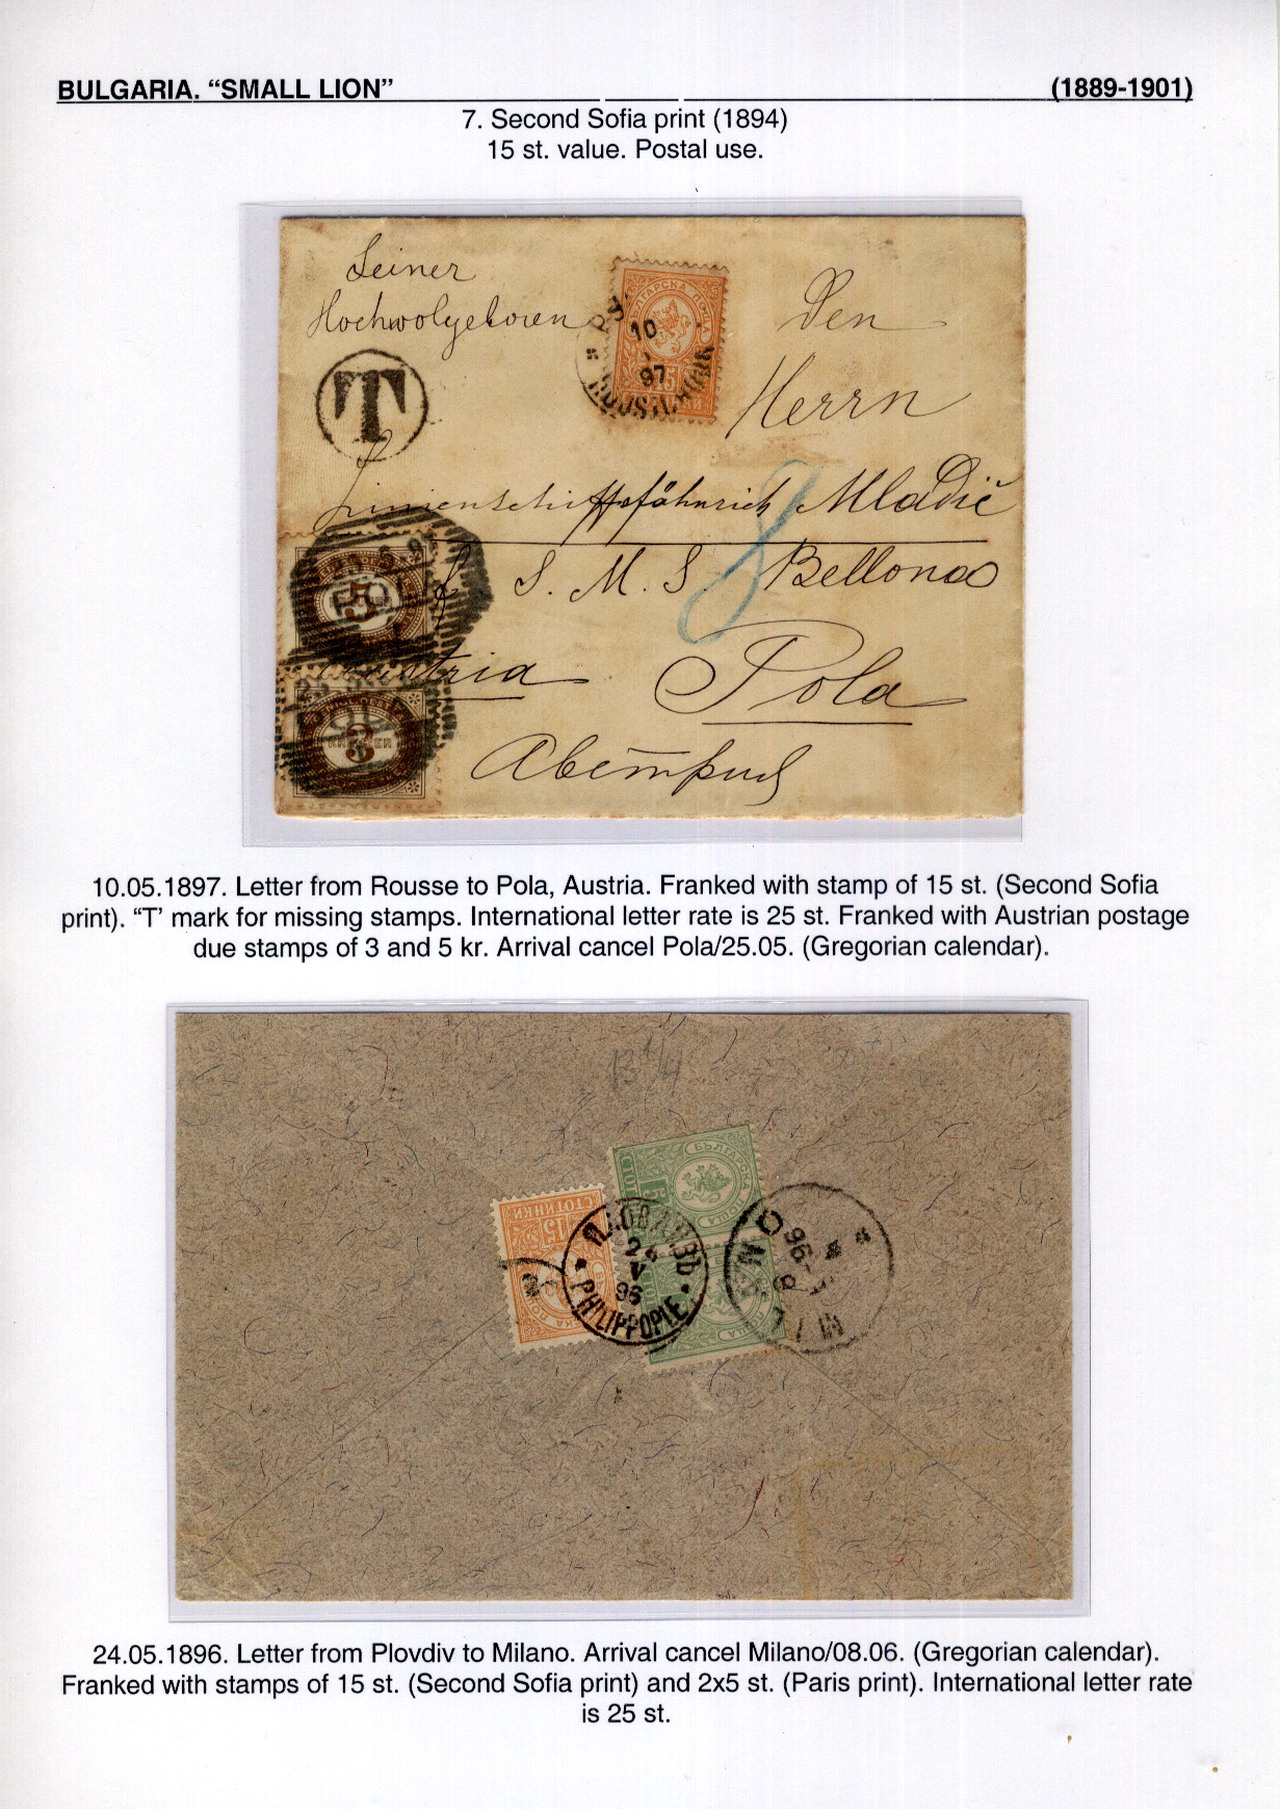 BULGARIA. “SMALL LION” (1889-1901)
7. Second Sofia print (1894)
15 st. value. Postal use.
Seiner
Hochwolgeboren
Den
Herrn
T
БЪЛГАРСКА ПОЩА
10
97
15
Linienschiffsfähnrich Mladić
8
S. M. S Bellona
5
Austria Pola
3
KREUZER
Австрия
10.05.1897. Letter from Rousse to Pola, Austria. Franked with stamp of 15 st. (Second Sofia
print). “T’ mark for missing stamps. International letter rate is 25 st. Franked with Austrian postage
due stamps of 3 and 5 kr. Arrival cancel Pola/25.05. (Gregorian calendar).
БЪЛГАРСКА ПОЩА
5
15
СТОТИНКИ
ПЛОВДИВЪ
24
V
96
PHILIPPOPLE
MILANO
8
96
24.05.1896. Letter from Plovdiv to Milano. Arrival cancel Milano/08.06. (Gregorian calendar).
Franked with stamps of 15 st. (Second Sofia print) and 2x5 st. (Paris print). International letter rate
is 25 st.